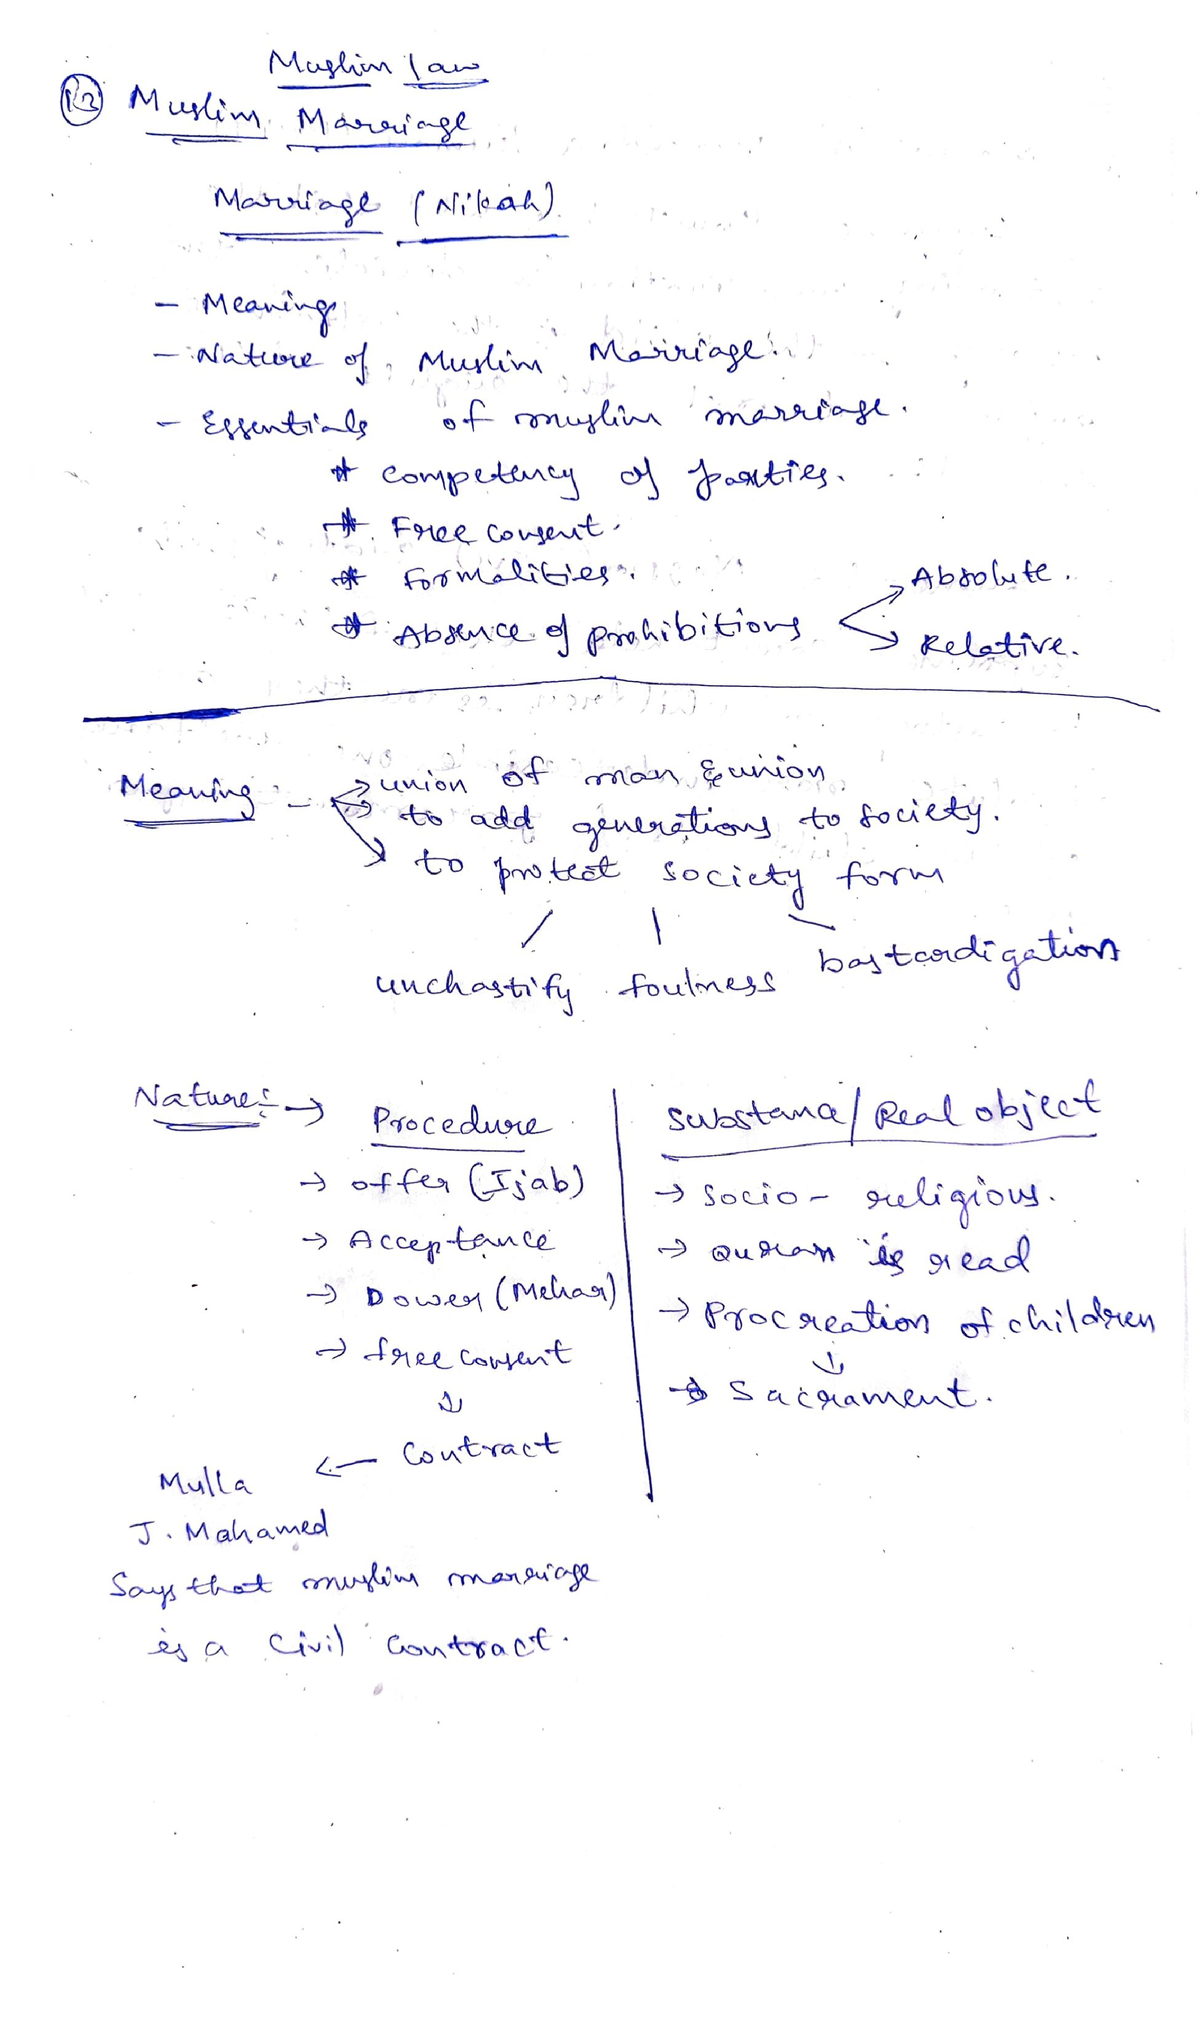 Muslim law
12 Muslim Marriage
Marriage (Nikah)
- Meaning
- Nature of Muslim Marriage.
- Essentials of muslim marriage.
* competency of parties.
* Free consent.
* Formalities.
* Absence of prohibitions
Absolute.
Relative.
Meaning - → union of man & union
→ to add generations to society.
→ to protect society form
unchastify foulness bastardigation
Nature:- →
Procedure
→ offer (Ijab)
→ Acceptance
→ Dower (Mehar)
→ free consent
↓
← Contract
Mulla
J. Mahamed
Says that muslim marriage
is a Civil Contract.
Substana / Real object
→ Socio - religious.
→ Quran is read
→ Procreation of children
↓
→ Sacrament.